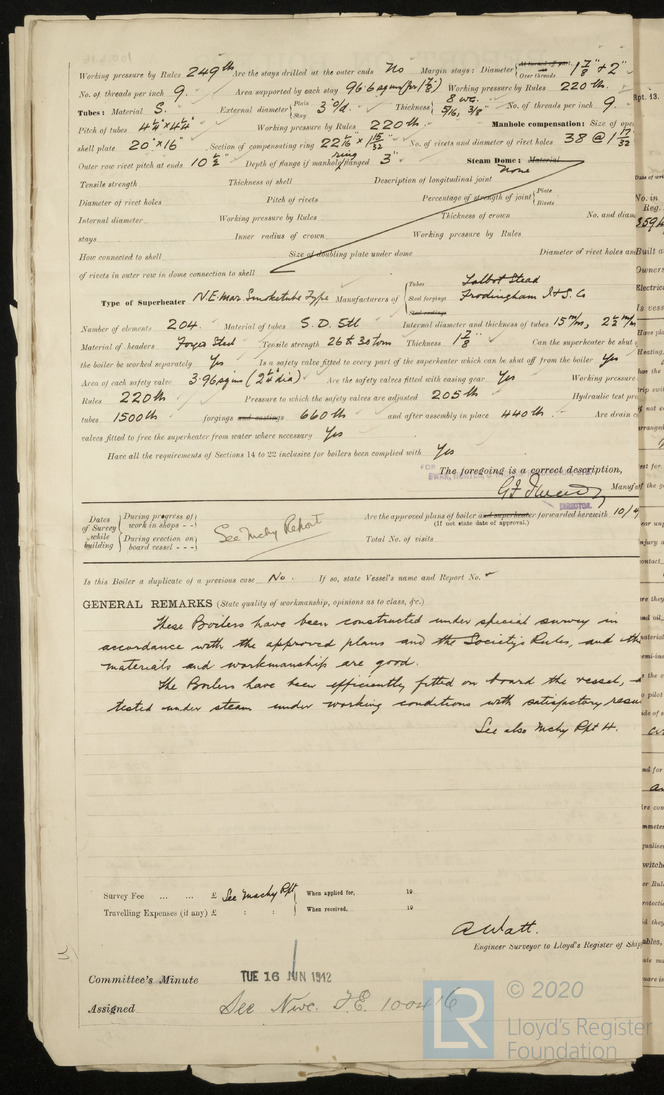 Working pressure by Rules 249 lb Are the stays drilled at the outer ends No Margin stays: Diameter { At turned off part, Over threads 1 7/8" + 2"
No. of threads per inch 9. Area supported by each stay 96.6 sq ins (for 1 7/8) Working pressure by Rules 220 lb.
Tubes: Material S. External diameter { Plain Stay 3" o/d. Thickness { 8 w.g. 5/16, 3/8" No. of threads per inch 9
Pitch of tubes 4¼" x 4¼" Working pressure by Rules 220 lb Manhole compensation: Size of
shell plate 20" x 16" Section of compensating ring 22 1/16" x 1 15/32" No. of rivets and diameter of rivet holes 38 @ 1 17/32
Outer row rivet pitch at ends 10½" Depth of flange if manhole flanged ring 3" Steam Dome: Material None
Tensile strength Thickness of shell Description of longitudinal joint
Diameter of rivet holes Pitch of rivets Percentage of strength of joint { Plate Rivets
Internal diameter Working pressure by Rules Thickness of crown No. and diam
stays Inner radius of crown Working pressure by Rules
How connected to shell Size of doubling plate under dome Diameter of rivet holes and
of rivets in outer row in dome connection to shell
Type of Superheater N.E. Mar. Smoketube Type Manufacturers of { Tubes Talbot Stead
Steel forgings Frodingham I. & S. Co
Steel castings
Number of elements 204. Material of tubes S.D. Stl Internal diameter and thickness of tubes 15 m/m, 2½ m/m
Material of headers Forged Steel Tensile strength 26 to 30 tons Thickness 1 7/8" Can the superheater be shut
the boiler be worked separately Yes Is a safety valve fitted to every part of the superheater which can be shut off from the boiler Yes
Area of each safety valve 3.96 sq ins (2¼" dia) Are the safety valves fitted with easing gear Yes Working pressure
Rules 220 lb Pressure to which the safety valves are adjusted 205 lb Hydraulic test pre
tubes 1500 lb forgings and castings 660 lb and after assembly in place 440 lb. Are drain c
valves fitted to free the superheater from water where necessary Yes
Have all the requirements of Sections 14 to 22 inclusive for boilers been complied with Yes
The foregoing is a correct description,
Manufac
DIRECTOR.
Dates of Survey while building { During progress of work in shops - - { During erection on board vessel - - -
See Mchy Report
Are the approved plans of boiler and superheater forwarded herewith 10/4
(If not state date of approval.)
Total No. of visits
Is this Boiler a duplicate of a previous case No. If so, state Vessel's name and Report No.
GENERAL REMARKS (State quality of workmanship, opinions as to class, &c.)
These Boilers have been constructed under special survey in
accordance with the approved plans and the Society's Rules, and the
materials and workmanship are good.
The Boilers have been efficiently fitted on board the vessel,
tested under steam under working conditions with satisfactory resu
See also Mchy Rpt 4.
Survey Fee ... ... £ See Machy Rpt When applied for, 19
Travelling Expenses (if any) £ : : When received, 19
A Watt.
Engineer Surveyor to Lloyd's Register of Ship
Committee's Minute TUE 16 JUN 1942
Assigned See Nwc. F.E. 100416
© 2020
LR Lloyd's Register
Foundation